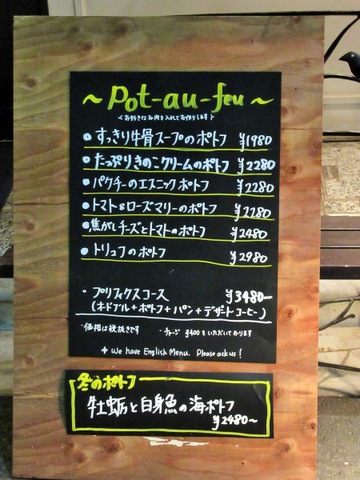 ~ Pot-au-feu ~
<お好きなお肉を入れてお作りします>
• すっきり牛骨スープのポトフ ¥1980
• たっぷりきのこクリームのポトフ ¥2280
• パクチーのエスニックポトフ ¥2280
• トマト&ローズマリーのポトフ ¥2280
• 焦がしチーズとトマトのポトフ ¥2480
• トリュフのポトフ ¥2980
・プリフィクスコース ¥3480-
(オードブル+ポトフ+パン+デザート コーヒー)
・価格は税抜きです ・チャージ ¥400をいただいております
+ We have English Menu. Please ask us!
冬のポトフ
牡蛎と白身魚の海ポトフ
¥2480~